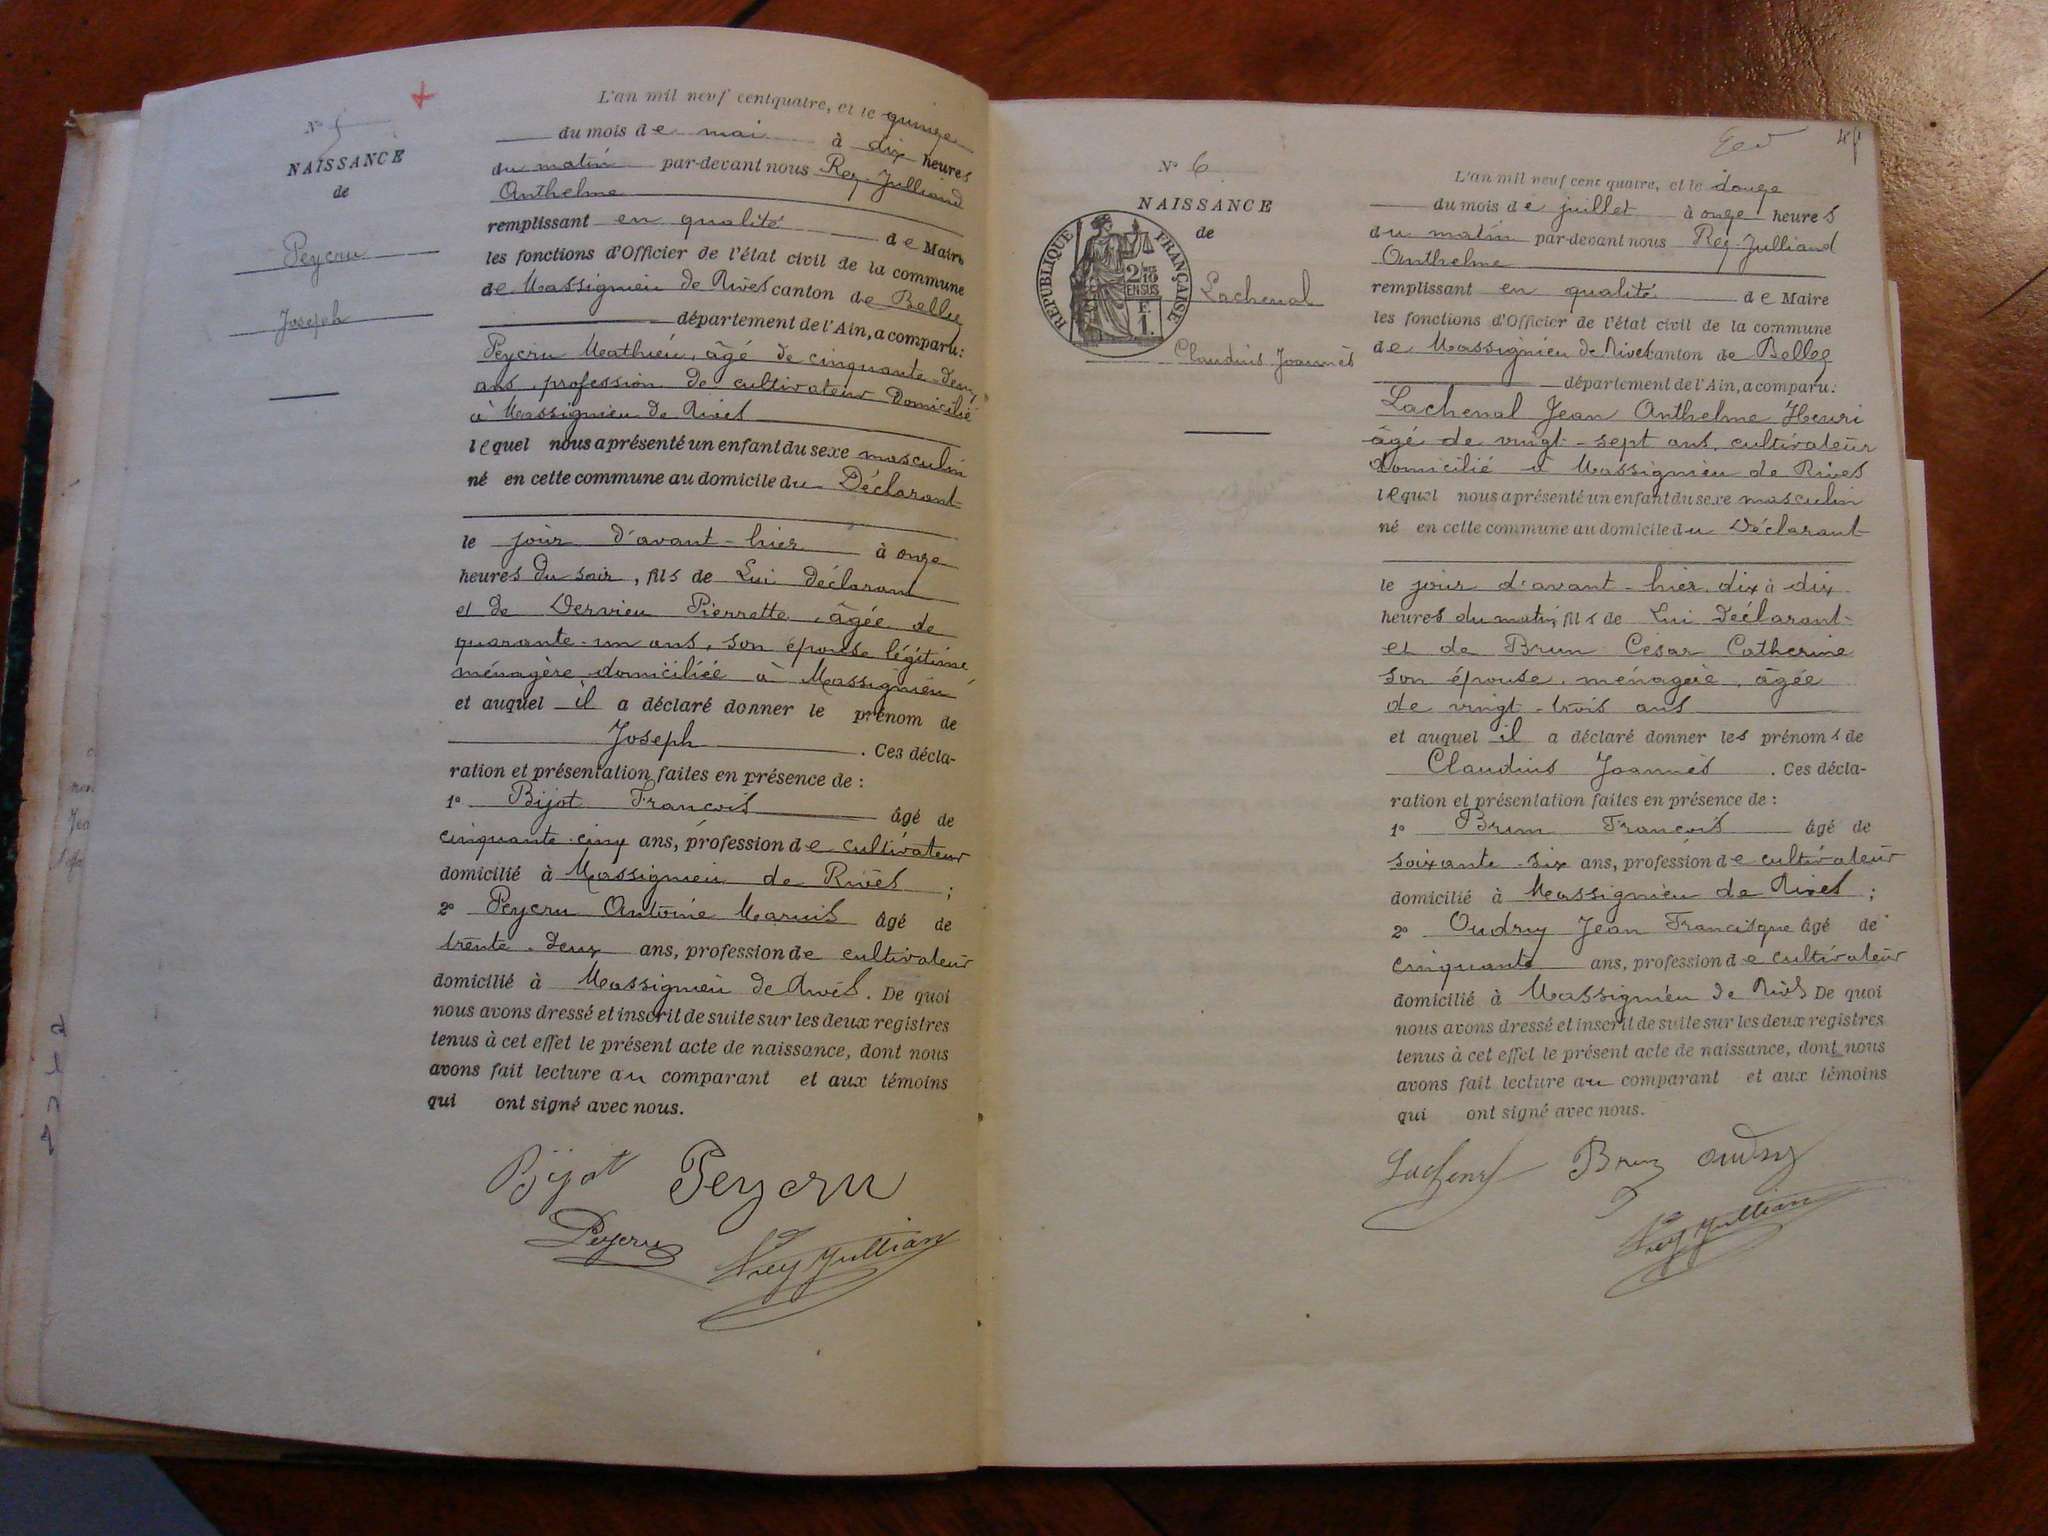 N° 5
NAISSANCE
de
Peycru
Joseph
L'an mil neuf cent quatre, et le quinze
du mois de mai à dix heures
du matin par-devant nous Rey-Julliand
Anthelme
remplissant en qualité de Maire
les fonctions d'Officier de l'état civil de la commune
de Massignieu de Rives canton de Belley
département de l'Ain, a comparu:
Peycru Mathieu, âgé de cinquante-deux
ans, profession de cultivateur Domicilié
à Massignieu de Rives
lequel nous a présenté un enfant du sexe masculin
né en cette commune au domicile du Déclarant
le jour d'avant-hier à onze
heures du soir, fils de Lui déclarant
et de Dervieu Pierrette, âgée de
quarante-un ans, son épouse légitime
ménagère domiciliée à Massignieu
et auquel il a déclaré donner le prénom de
Joseph. Ces décla-
ration et présentation faites en présence de :
1° Bijot François âgé de
cinquante-cinq ans, profession de cultivateur
domicilié à Massignieu de Rives ;
2° Peycru Antoine Marius âgé de
trente-deux ans, profession de cultivateur
domicilié à Massignieu de Rives. De quoi
nous avons dressé et inscrit de suite sur les deux registres
tenus à cet effet le présent acte de naissance, dont nous
avons fait lecture au comparant et aux témoins
qui ont signé avec nous.
Bijot Peycru
Peycru Rey Jullian
N° 6
NAISSANCE
de
RÉPUBLIQUE FRANÇAISE
2/10
EN SUS
F.
1.
Lachenal
Claudius Joannès
L'an mil neuf cent quatre, et le douze
du mois de juillet à onze heures
du matin par-devant nous Rey-Julliand
Anthelme
remplissant en qualité de Maire
les fonctions d'Officier de l'état civil de la commune
de Massignieu de Rives canton de Belley
département de l'Ain, a comparu:
Lachenal Jean Anthelme Henri
âgé de vingt-sept ans, cultivateur
domicilié à Massignieu de Rives
lequel nous a présenté un enfant du sexe masculin
né en cette commune au domicile du Déclarant
le jour d'avant-hier dix à dix
heures du matin, fils de Lui Déclarant
et de Brun César Catherine
son épouse, ménagère, âgée
de vingt-trois ans
et auquel il a déclaré donner les prénoms de
Claudius Joannès. Ces décla-
ration et présentation faites en présence de :
1° Brun François âgé de
soixante-six ans, profession de cultivateur
domicilié à Massignieu de Rives ;
2° Oudry Jean Francisque âgé de
cinquante ans, profession de cultivateur
domicilié à Massignieu de Rives De quoi
nous avons dressé et inscrit de suite sur les deux registres
tenus à cet effet le présent acte de naissance, dont nous
avons fait lecture au comparant et aux témoins
qui ont signé avec nous.
Lachenal Brun Oudry
Rey Jullian